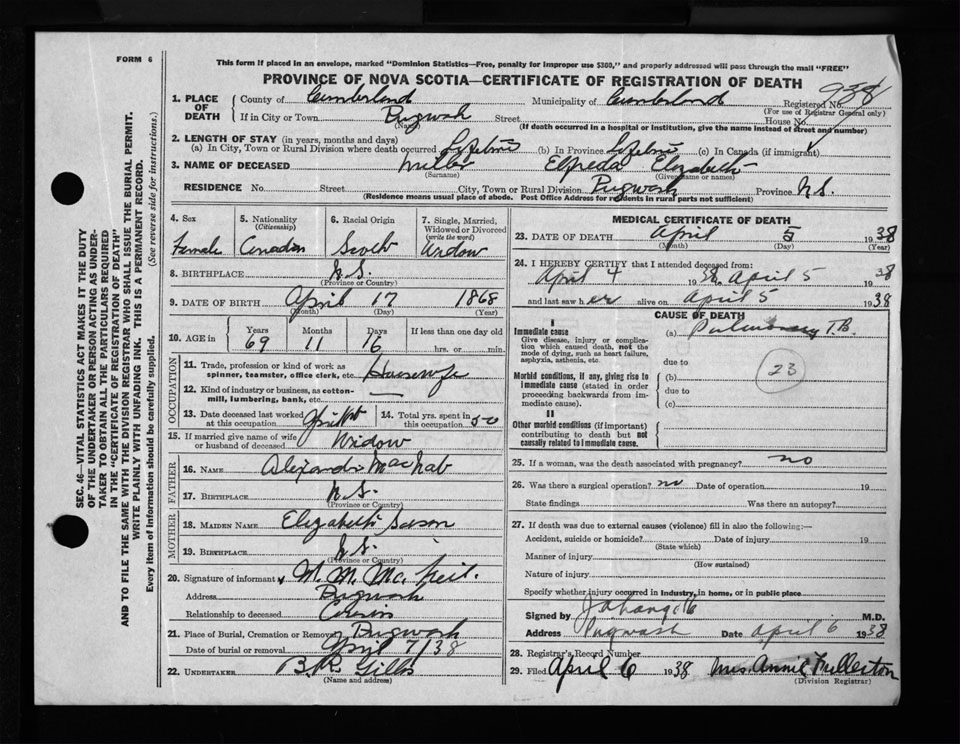 FORM 6
This form if placed in an envelope, marked "Dominion Statistics—Free, penalty for improper use $300," and properly addressed will pass through the mail "FREE"
PROVINCE OF NOVA SCOTIA—CERTIFICATE OF REGISTRATION OF DEATH
938
1. PLACE OF DEATH
County of Cumberland Municipality of Cumberland Registered No.
(For use of Registrar General only)
If in City or Town Pugwash Street House No.
(Name) (If death occurred in a hospital or institution, give the name instead of street and number)
2. LENGTH OF STAY (in years, months and days)
(a) In City, Town or Rural Division where death occurred Lifetime (b) In Province Lifetime (c) In Canada (if immigrant)
3. NAME OF DECEASED Miller Elfreda Elizabeth
(Surname) (Given name or names)
RESIDENCE No. Street City, Town or Rural Division Pugwash Province N.S.
(Residence means usual place of abode. Post Office Address for residents in rural parts not sufficient)
4. Sex Female
5. Nationality (Citizenship) Canadian
6. Racial Origin Scotch
7. Single, Married, Widowed or Divorced (write the word) Widow
8. BIRTHPLACE N.S.
(Province or Country)
9. DATE OF BIRTH April 17 1868
(Month) (Day) (Year)
10. AGE in Years 69 Months 11 Days 16 If less than one day old hrs. or min.
OCCUPATION
11. Trade, profession or kind of work as spinner, teamster, office clerk, etc. Housewife
12. Kind of industry or business, as cotton-mill, lumbering, bank, etc. —
13. Date deceased last worked at this occupation
14. Total yrs. spent in this occupation 50
15. If married give name of wife or husband of deceased Widow
FATHER
16. NAME Alexander MacNab
17. BIRTHPLACE N.S.
(Province or Country)
MOTHER
18. MAIDEN NAME Elizabeth
19. BIRTHPLACE N.S.
(Province or Country)
20. Signature of informant M. M. Mc. Neil.
Address Pugwash
Relationship to deceased Cousin
21. Place of Burial, Cremation or Removal Pugwash
Date of burial or removal April 7/38
22. UNDERTAKER B.R. Gillis
(Name and address)
MEDICAL CERTIFICATE OF DEATH
23. DATE OF DEATH April 5 1938
(Month) (Day) (Year)
24. I HEREBY CERTIFY that I attended deceased from:
April 4 1938, April 5 1938
and last saw her alive on April 5 1938
CAUSE OF DEATH
I
Immediate cause (a) Pulmonary T.B.
Give disease, injury or complication which caused death, not the mode of dying, such as heart failure, asphyxia, asthenia, etc.
due to
Morbid conditions, if any, giving rise to immediate cause (stated in order proceeding backwards from immediate cause).
(b)
due to
(c)
23
II
Other morbid conditions (if important) contributing to death but not causally related to immediate cause.
25. If a woman, was the death associated with pregnancy? no
26. Was there a surgical operation? no Date of operation 19
State findings Was there an autopsy?
27. If death was due to external causes (violence) fill in also the following:—
Accident, suicide or homicide? Date of injury 19
(State which)
Manner of injury
(How sustained)
Nature of injury
Specify whether injury occurred in industry, in home, or in public place
Signed by M.D.
Address Pugwash Date April 6 1938
28. Registrar's Record Number
29. Filed April 6 1938 Mrs. Annie Fullerton
(Division Registrar)
SEC. 46—VITAL STATISTICS ACT MAKES IT THE DUTY
OF THE UNDERTAKER OR PERSON ACTING AS UNDER-
TAKER TO OBTAIN ALL THE PARTICULARS REQUIRED
IN THE "CERTIFICATE OF REGISTRATION OF DEATH"
AND TO FILE THE SAME WITH THE DIVISION REGISTRAR WHO SHALL ISSUE THE BURIAL PERMIT.
WRITE PLAINLY WITH UNFADING INK. THIS IS A PERMANENT RECORD.
Every item of information should be carefully supplied. (See reverse side for instructions.)